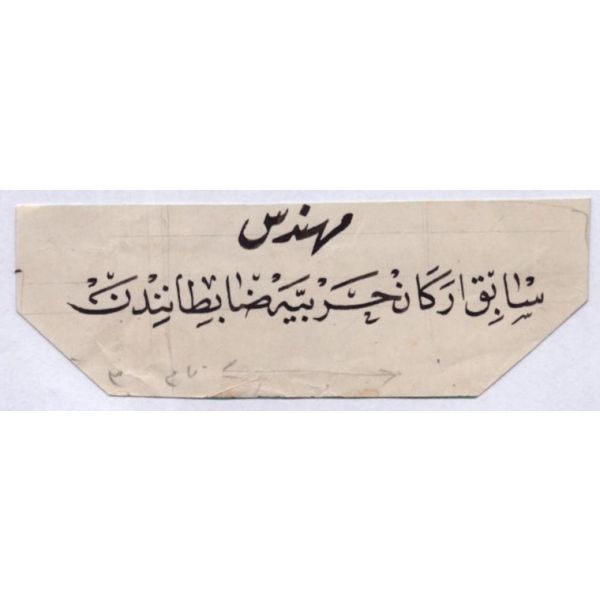 مهندس
سابق اركان حربيه ضابطانندن